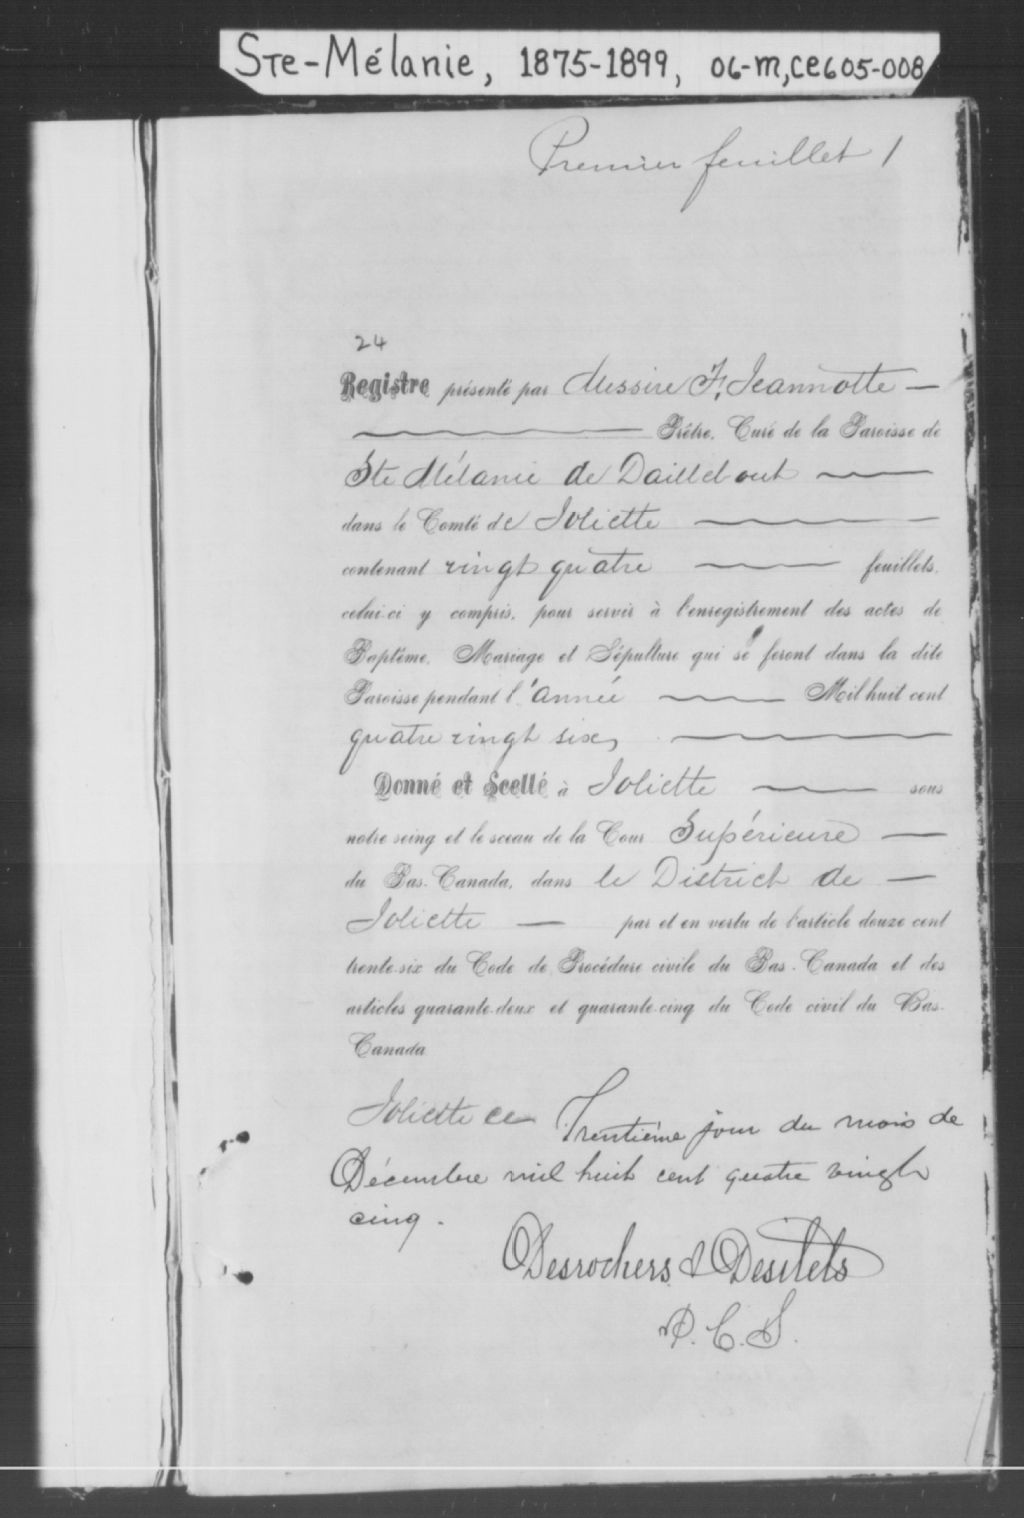 Ste-Mélanie, 1875-1899, 06-M,CE605-008
Premier feuillet 1
24
Registre présenté par Messire F. Jeannotte —
Prêtre, Curé de la Paroisse de
Ste Mélanie de Daillebout
dans le Comté de Joliette
contenant vingt quatre feuillets,
celui-ci y compris, pour servir à l'enregistrement des actes de
Baptême, Mariage et Sépulture qui se feront dans la dite
Paroisse pendant l'année Mil huit cent
quatre vingt six,
Donné et Scellé à Joliette sous
notre seing et le sceau de la Cour Supérieure —
du Bas-Canada, dans le District de —
Joliette — par et en vertu de l'article douze cent
trente-six du Code de Procédure civile du Bas-Canada et des
articles quarante-deux et quarante-cinq du Code civil du Bas-
Canada
Joliette ce Trentième jour du mois de
Décembre mil huit cent quatre vingt
cinq.
Desrochers & Desilets
P. C. S.